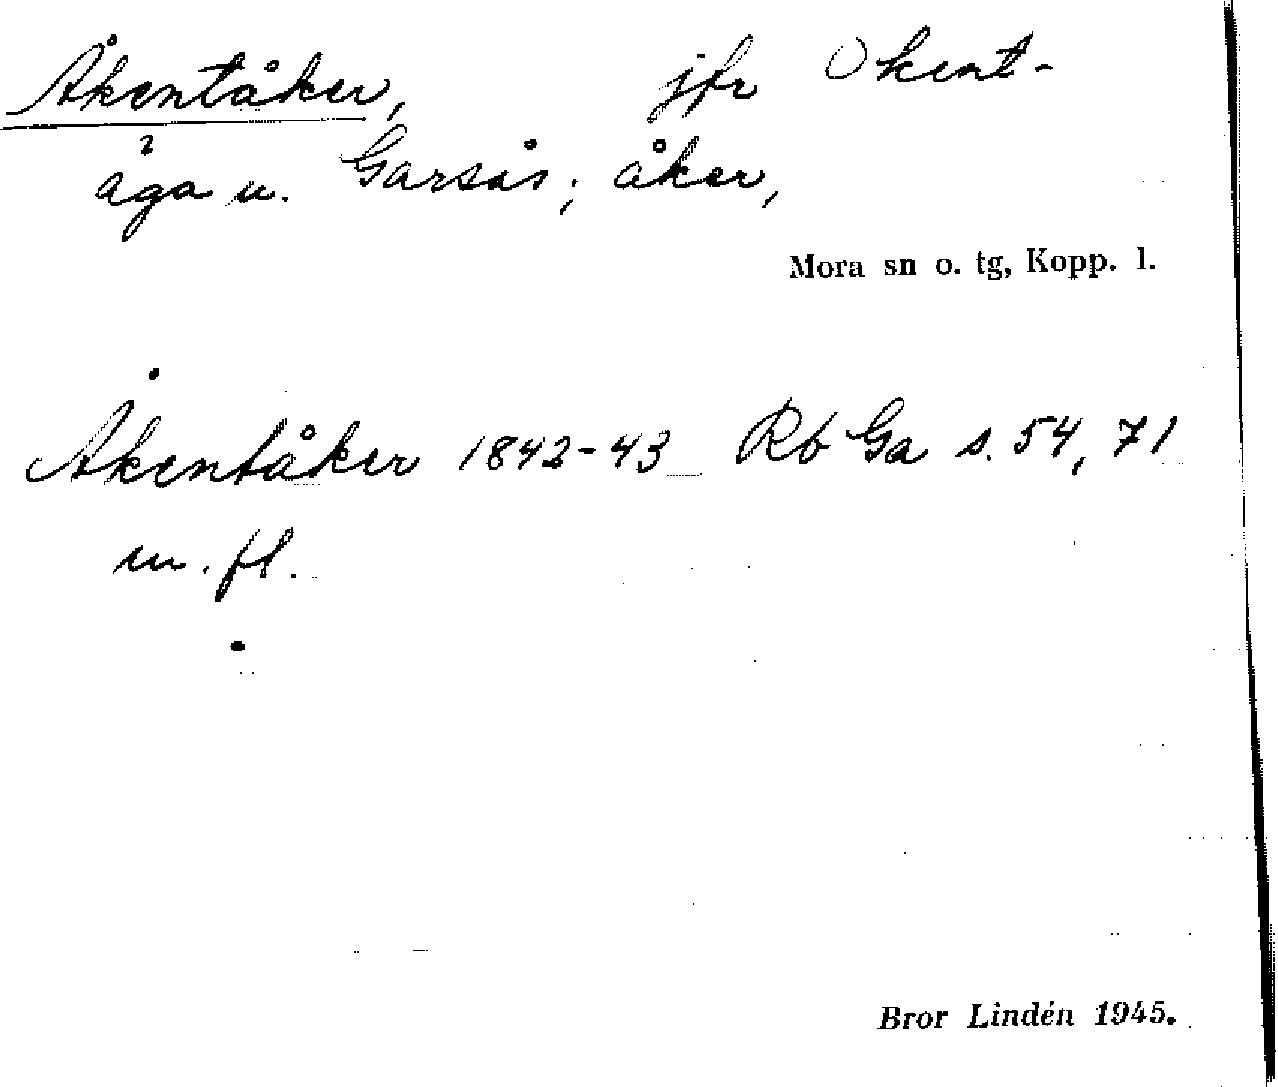 Åkentåker, jfr Okent-
äga u. Garsås; åker,
Mora sn o. tg, Kopp. l.
Åkentåker 1842-43 Rb Ga s. 54, 71
m. fl.
Bror Lindén 1945.